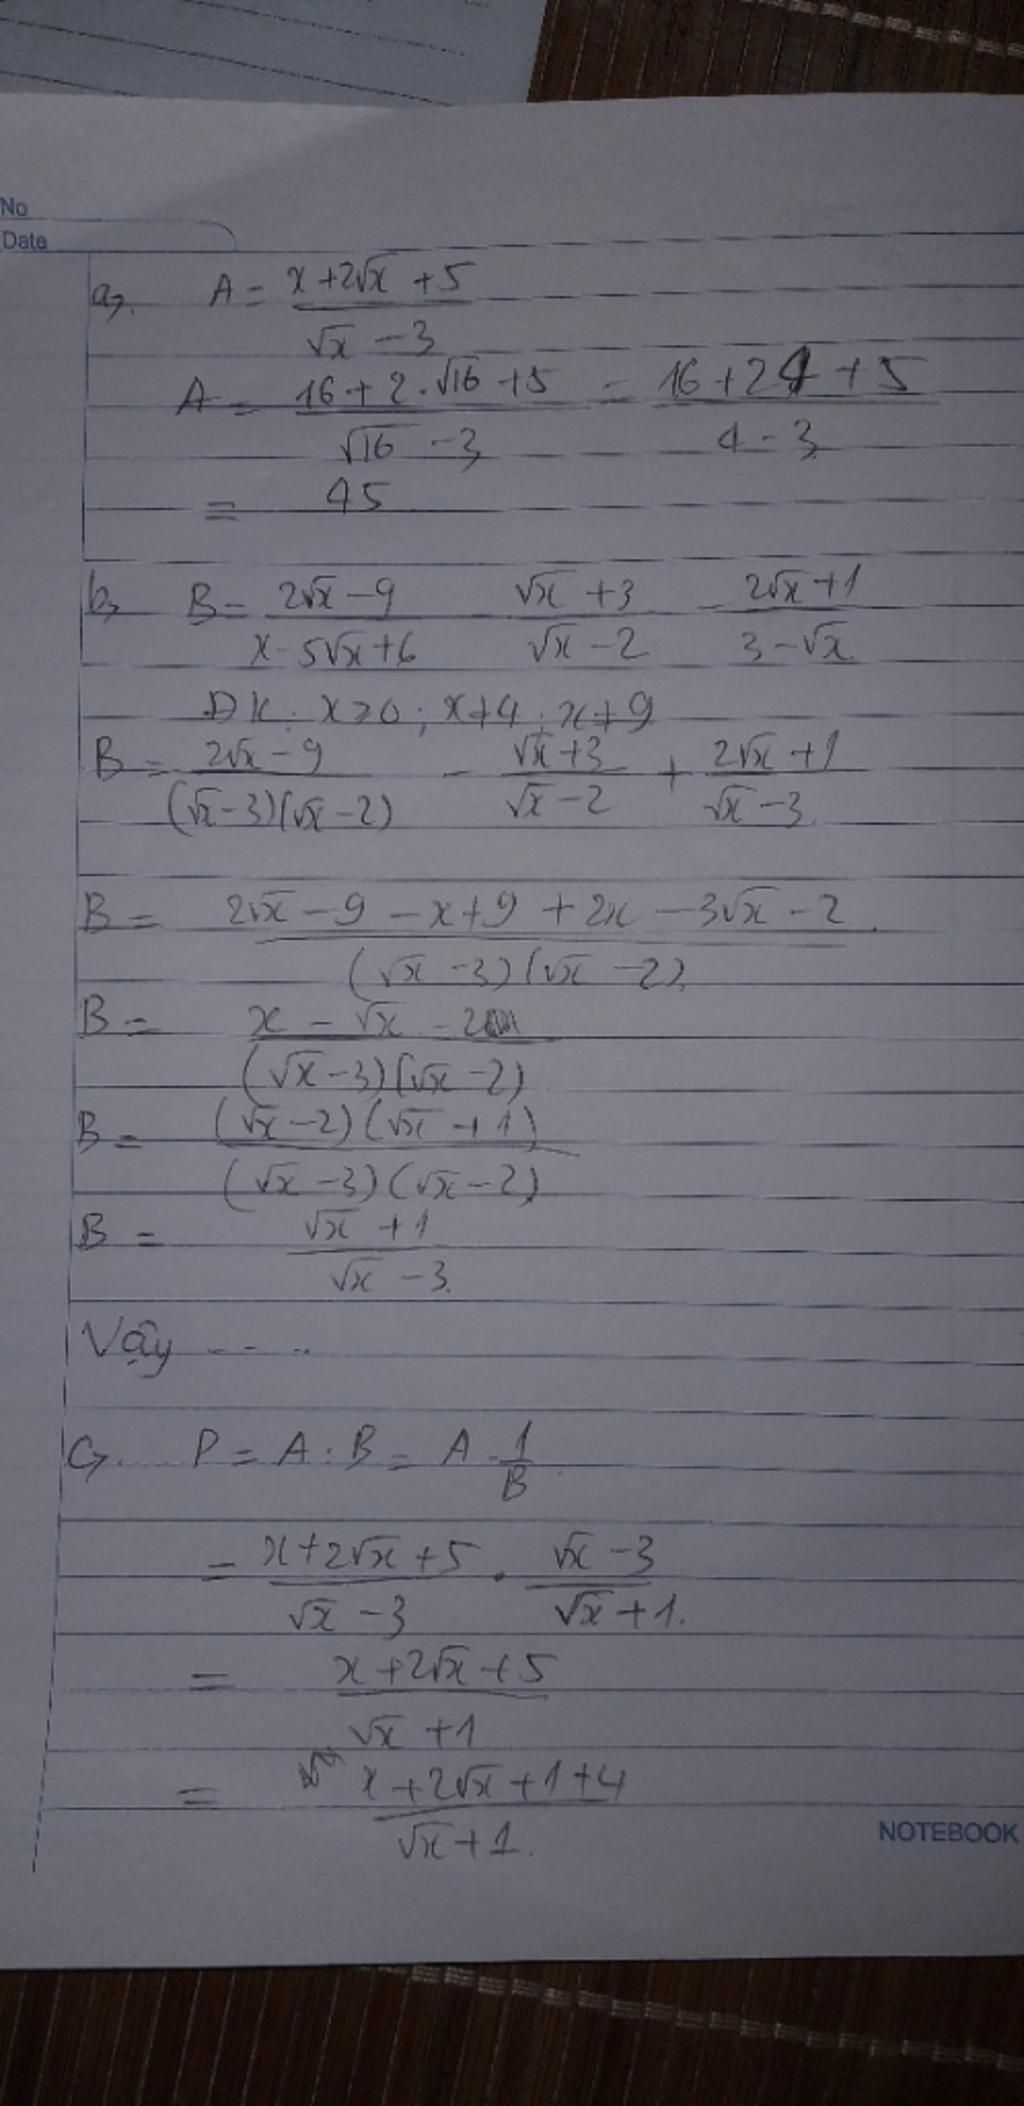 No
Date
a, A = (x+2√x+5)/(√x-3)
A = (16+2.√16+5)/(√16-3) = (16+24+5)/(4-3)
= 45
b, B = (2√x-9)/(x-5√x+6) - (√x+3)/(√x-2) - (2√x+1)/(3-√x)
ĐK: x≥0; x≠4; x≠9
B = (2√x-9)/((√x-3)(√x-2)) - (√x+3)/(√x-2) + (2√x+1)/(√x-3)
B = (2√x-9-x+9+2x-3√x-2)/((√x-3)(√x-2))
B = (x-√x-2)/((√x-3)(√x-2))
B = ((√x-2)(√x+1))/((√x-3)(√x-2))
B = (√x+1)/(√x-3)
Vậy .....
C, P = A : B = A . 1/B
= (x+2√x+5)/(√x-3) . (√x-3)/(√x+1)
= (x+2√x+5)/(√x+1)
= (x+2√x+1+4)/(√x+1)
NOTEBOOK